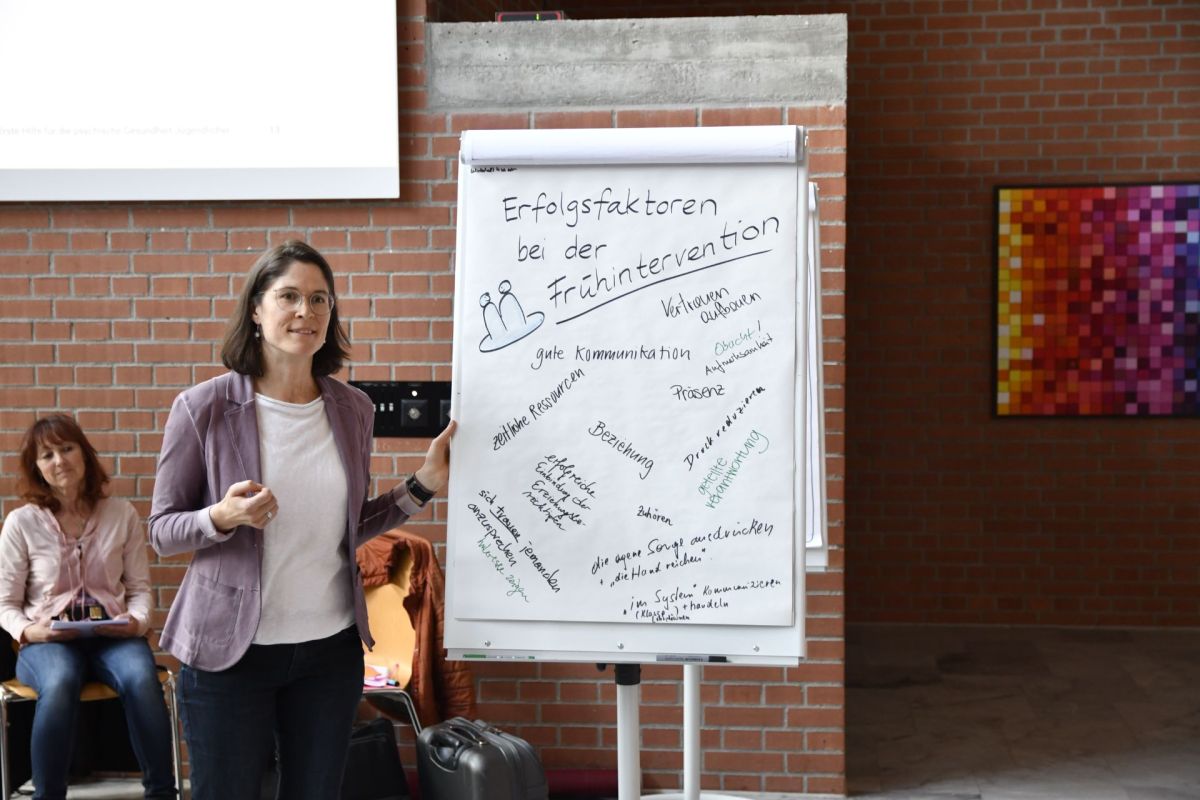 Erste Hilfe für die psychische Gesundheit Jugendlicher 13
Erfolgsfaktoren
bei der
Frühintervention
Vertrauen
aufbauen
Obacht!
Aufmerksamkeit
gute Kommunikation
Präsenz
zeitliche Ressourcen
Druck reduzieren
Beziehung
geteilte
Verantwortung
erfolgreiche
Einbindung der
Erziehungsbe-
rechtigten
Zuhören
sich trauen jemanden
anzusprechen
Interesse zeigen
die eigene Sorge ausdrücken
+ „die Hand reichen".
„im System" kommunizieren
(Klasse) + handeln